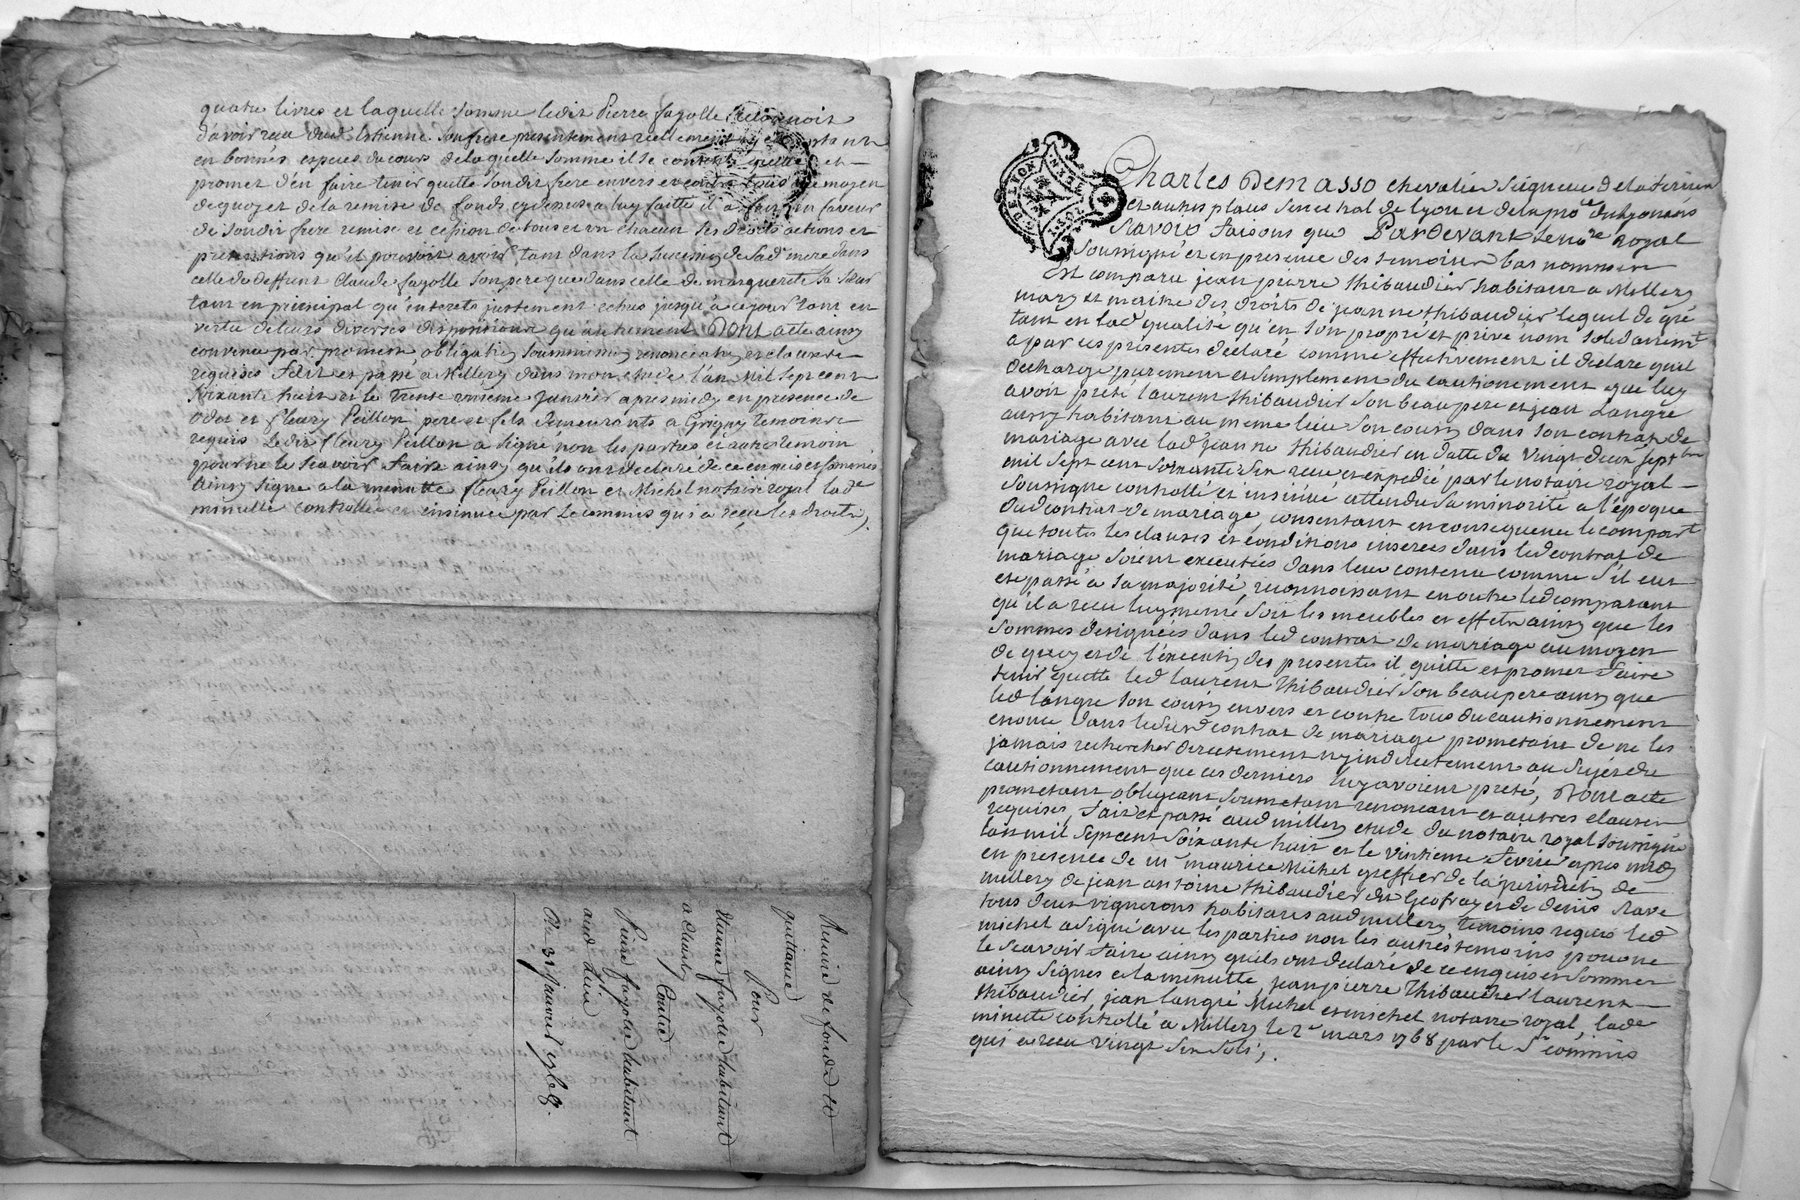 quatre livres et laquelle somme ledit Pierre fayolle reconnoit
d'avoir recu dud Estienne son frere presentement reellement et comptant
en bonnes especes du cours de laquelle somme il se contente quitte et
promet d'en faire tenir quitte sondit frere envers et contre tous au moyen
de quoy et de la remise de fonds cydessus a luy faitte il a fait en faveur
de sondit frere remise et cession de tous et un chacun ses droits actions et
pretentions qu'il pouvoit avoir tant dans la succession de sad mere dans
celle de deffunt Claude fayolle son pere que dans celle de marguerite sa sœur
tant en principal qu'interets justement echus jusqu'à ce jour tant en
vertu de leurs diverses dispositions qu'autrement Dont acte ainsy
convenu par promesse obligation soummission renonciation et clauses
requises Fait et passé a Millery dans mon etude l'an Mil sept cent
soixante huit et le trente unieme Janvier apres midy en presence de
Odet et fleury Peillon pere et fils demeurants a Grigny temoins
requis Ledit fleury Peillon a signé non les parties et autre temoin
pour ne le scavoir faire ainsy qu'ils ont declaré de ce enquis et sommés
Ainsy signé a la minutte fleury Peillon et Michel notaire royal lade
minutte controllée et ensinuée par le commis qui a reçu les droits,
Remise de fonds et
quittance
Pour
Etienne fayolle habitant
a Chassy
Contre
Pierre fayolle habitant
aud lieu
Du 31 Janvier 1768.
G. DE LYON
MOYEN
Charles Demasso chevalier Seigneur de la ferriere
et autres places Senechal de Lyon et de la prov.ce du Lyonnois
Scavoir faisons que Pardevant le no.re royal
soussigné et en presence des temoins bas nommés
Est comparu jean pierre thibaudier habitant a Millery
mary et maitre des droits de jeanne thibaudier lequel de gré
tant en lad qualité qu'en son propre et privé nom solidairem.t
a par ces presentes declaré comme effectivement il declare quil
decharge purement et simplement du cautionement que luy
avoit prété laurent thibaudier son beaupere et jean Langre
aussy habitant au meme lieu son cousin dans son contrat de
mariage avec lad jeanne thibaudier en datte du vingt deux septbre
mil sept cent soixante six recu et expedié par le notaire royal
soussigné controllé et insinué attendu sa minorité a l'époque
dud contrat de mariage, consentant en consequence le comparant
que toutes les clauses et conditions inserees dans led contrat de
mariage soient executées dans leur contenu comme s'il eut
eté passé a sa majorité, reconnoissant en outre led comparant
qu'il a recu luy meme soit les meubles et effets ainsy que les
sommes designées dans led contrat de mariage au moyen
de quoy et de l'execution des presentes il quitte et promet faire
tenir quitte led laurent Thibaudier son beaupere ainsy que
led langre son cousin envers et contre tous du cautionnement
enoncé dans le susd contrat de mariage promettant de ne les
jamais rechercher directement ny indirectement au sujet du
cautionnement que ces derniers luy avoient preté, Dont acte
promettant obligeant soumettant renoncant et autres clauses
requises, fait et passé aud millery etude du notaire royal soussigné
lan mil sept cent soixante huit et le vintieme fevrier apres midy
en presence de m.r maurice Michel greffier de la jurisdiction de
millery de jean antoine thibaudier dit Geofray et de denis Rave
tous deux vignerons habitants aud millery temoins requis led
michel a signé avec les parties non les autres temoins pour ne
le scavoir faire ainsy quils ont declaré de ce enquis et sommes
ainsy signes a la minutte, jean pierre Thibaudier laurent
thibaudier, jean langre Michel et michel notaire royal, lade
minute controllé a Millery le 2.e mars 1768 par le S.r commis
qui a recu vingt six sols,.